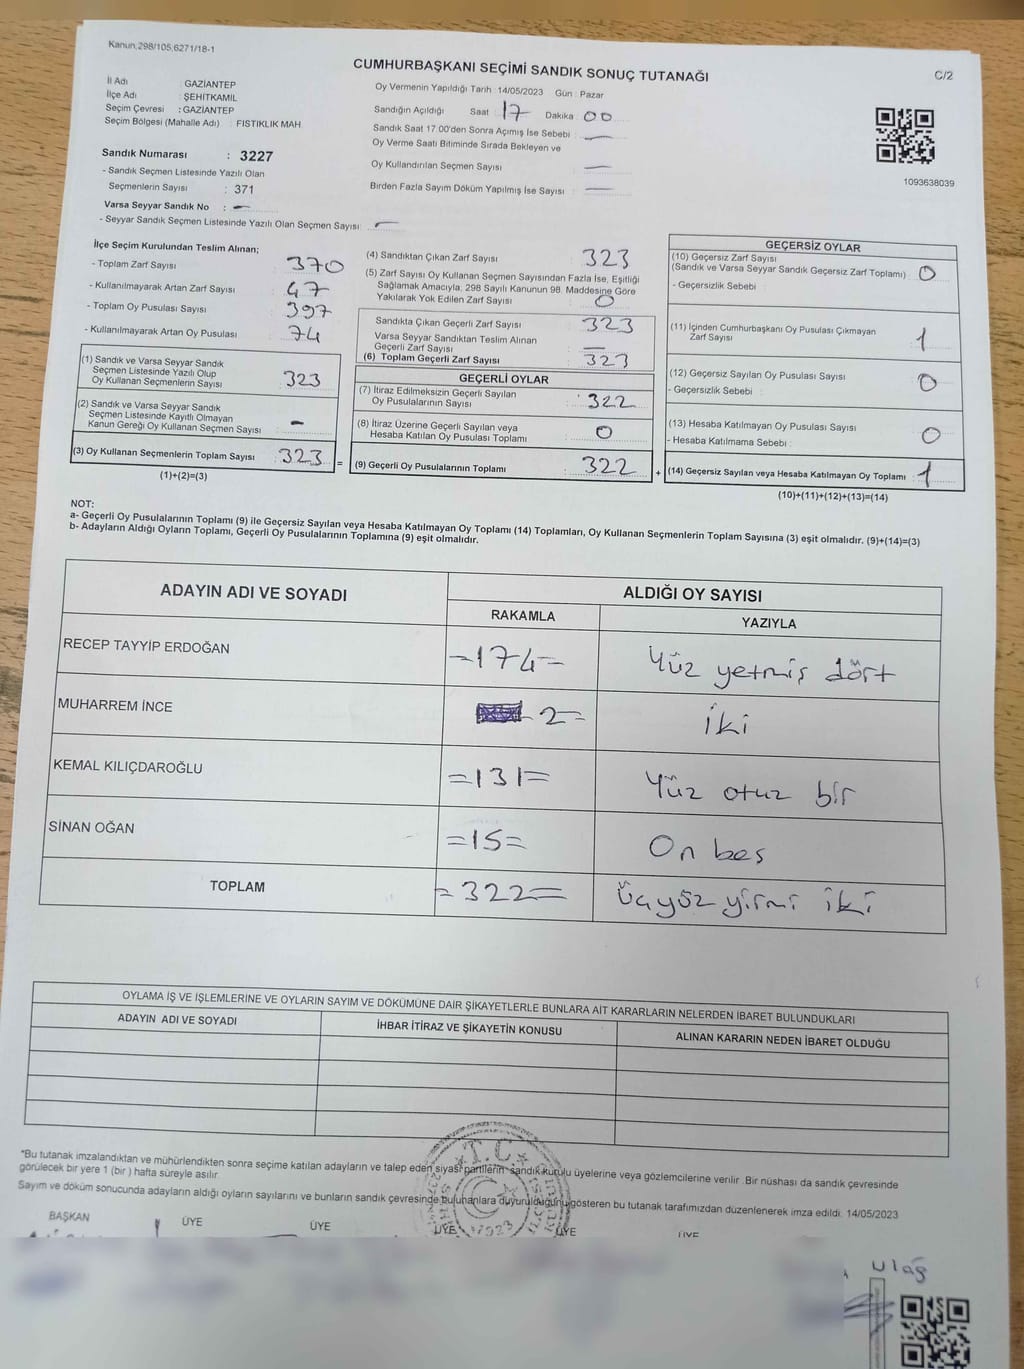 Kanun,298/105,6271/18-1
CUMHURBAŞKANI SEÇİMİ SANDIK SONUÇ TUTANAĞI
C/2
İl Adı : GAZİANTEP
İlçe Adı : ŞEHİTKAMİL
Seçim Çevresi : GAZİANTEP
Seçim Bölgesi (Mahalle Adı) : FISTIKLIK MAH.
Sandık Numarası : 3227
- Sandık Seçmen Listesinde Yazılı Olan
Seçmenlerin Sayısı : 371
Varsa Seyyar Sandık No : -
- Seyyar Sandık Seçmen Listesinde Yazılı Olan Seçmen Sayısı: -
Oy Vermenin Yapıldığı Tarih : 14/05/2023 Gün : Pazar
Sandığın Açıldığı Saat 17 Dakika 00
Sandık Saat 17.00'den Sonra Açımış İse Sebebi : -
Oy Verme Saati Bitiminde Sırada Bekleyen ve
Oy Kullandırılan Seçmen Sayısı : -
Birden Fazla Sayım Döküm Yapılmış İse Sayısı : -
1093638039
İlçe Seçim Kurulundan Teslim Alınan;
- Toplam Zarf Sayısı : 370
- Kullanılmayarak Artan Zarf Sayısı : 47
- Toplam Oy Pusulası Sayısı : 397
- Kullanılmayarak Artan Oy Pusulası : 74
(1) Sandık ve Varsa Seyyar Sandık
Seçmen Listesinde Yazılı Olup
Oy Kullanan Seçmenlerin Sayısı : 323
(2) Sandık ve Varsa Seyyar Sandık
Seçmen Listesinde Kayıtlı Olmayan
Kanun Gereği Oy Kullanan Seçmen Sayısı : -
(3) Oy Kullanan Seçmenlerin Toplam Sayısı : 323 =
(1)+(2)=(3)
(4) Sandıktan Çıkan Zarf Sayısı : 323
(5) Zarf Sayısı Oy Kullanan Seçmen Sayısından Fazla İse, Eşitliği
Sağlamak Amacıyla, 298 Sayılı Kanunun 98. Maddesine Göre
Yakılarak Yok Edilen Zarf Sayısı : 0
Sandıkta Çıkan Geçerli Zarf Sayısı : 323
Varsa Seyyar Sandıktan Teslim Alınan
Geçerli Zarf Sayısı : -
(6) Toplam Geçerli Zarf Sayısı : 323
GEÇERLİ OYLAR
(7) İtiraz Edilmeksizin Geçerli Sayılan
Oy Pusulalarının Sayısı : 322
(8) İtiraz Üzerine Geçerli Sayılan veya
Hesaba Katılan Oy Pusulası Toplamı : 0
(9) Geçerli Oy Pusulalarının Toplamı : 322 +
GEÇERSİZ OYLAR
(10) Geçersiz Zarf Sayısı
(Sandık ve Varsa Seyyar Sandık Geçersiz Zarf Toplamı) : 0
- Geçersizlik Sebebi :
(11) İçinden Cumhurbaşkanı Oy Pusulası Çıkmayan
Zarf Sayısı : 1
(12) Geçersiz Sayılan Oy Pusulası Sayısı : 0
- Geçersizlik Sebebi :
(13) Hesaba Katılmayan Oy Pusulası Sayısı : 0
- Hesaba Katılmama Sebebi :
(14) Geçersiz Sayılan veya Hesaba Katılmayan Oy Toplamı : 1
(10)+(11)+(12)+(13)=(14)
NOT:
a- Geçerli Oy Pusulalarının Toplamı (9) ile Geçersiz Sayılan veya Hesaba Katılmayan Oy Toplamı (14) Toplamları, Oy Kullanan Seçmenlerin Toplam Sayısına (3) eşit olmalıdır. (9)+(14)=(3)
b- Adayların Aldığı Oyların Toplamı, Geçerli Oy Pusulalarının Toplamına (9) eşit olmalıdır.
ADAYIN ADI VE SOYADI
ALDIĞI OY SAYISI
RAKAMLA YAZIYLA
RECEP TAYYİP ERDOĞAN =174= Yüz yetmiş dört
MUHARREM İNCE - 2 = İki
KEMAL KILIÇDAROĞLU =131= Yüz otuz bir
SİNAN OĞAN =15= On beş
TOPLAM =322= Üçyüz yirmi iki
OYLAMA İŞ VE İŞLEMLERİNE VE OYLARIN SAYIM VE DÖKÜMÜNE DAİR ŞİKAYETLERLE BUNLARA AİT KARARLARIN NELERDEN İBARET BULUNDUKLARI
ADAYIN ADI VE SOYADI
İHBAR İTİRAZ VE ŞİKAYETİN KONUSU
ALINAN KARARIN NEDEN İBARET OLDUĞU
*Bu tutanak imzalandıktan ve mühürlendikten sonra seçime katılan adayların ve talep eden siyasi partilerin sandık kurulu üyelerine veya gözlemcilerine verilir. Bir nüshası da sandık çevresinde
görülecek bir yere 1 (bir) hafta süreyle asılır.
Sayım ve döküm sonucunda adayların aldığı oyların sayılarını ve bunların sandık çevresinde bulunanlara duyurulduğunu gösteren bu tutanak tarafımızdan düzenlenerek imza edildi. 14/05/2023
T.C.
BAŞKAN ÜYE ÜYE ÜYE ÜYE ÜYE
Ulaş